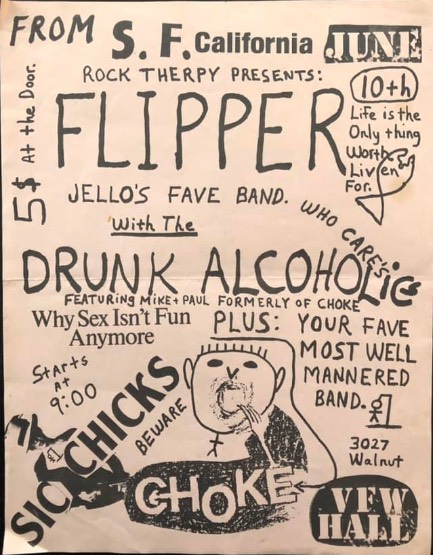 FROM S. F. California JUNE
10th
ROCK THERPY PRESENTS:
5$ At the Door.
FLIPPER
Life is the
Only thing
Worth
Liven
For.
JELLO'S FAVE BAND.
With The
WHO CARE'S
DRUNK ALCOHOLIC
FEATURING MIKE + PAUL FORMERLY OF CHOKE
Why Sex Isn't Fun
Anymore
PLUS: YOUR FAVE
MOST WELL
MANNERED
BAND.
Starts
At
9:00
SIC CHICKS
BEWARE
CHOKE
3027
Walnut
VFW
HALL